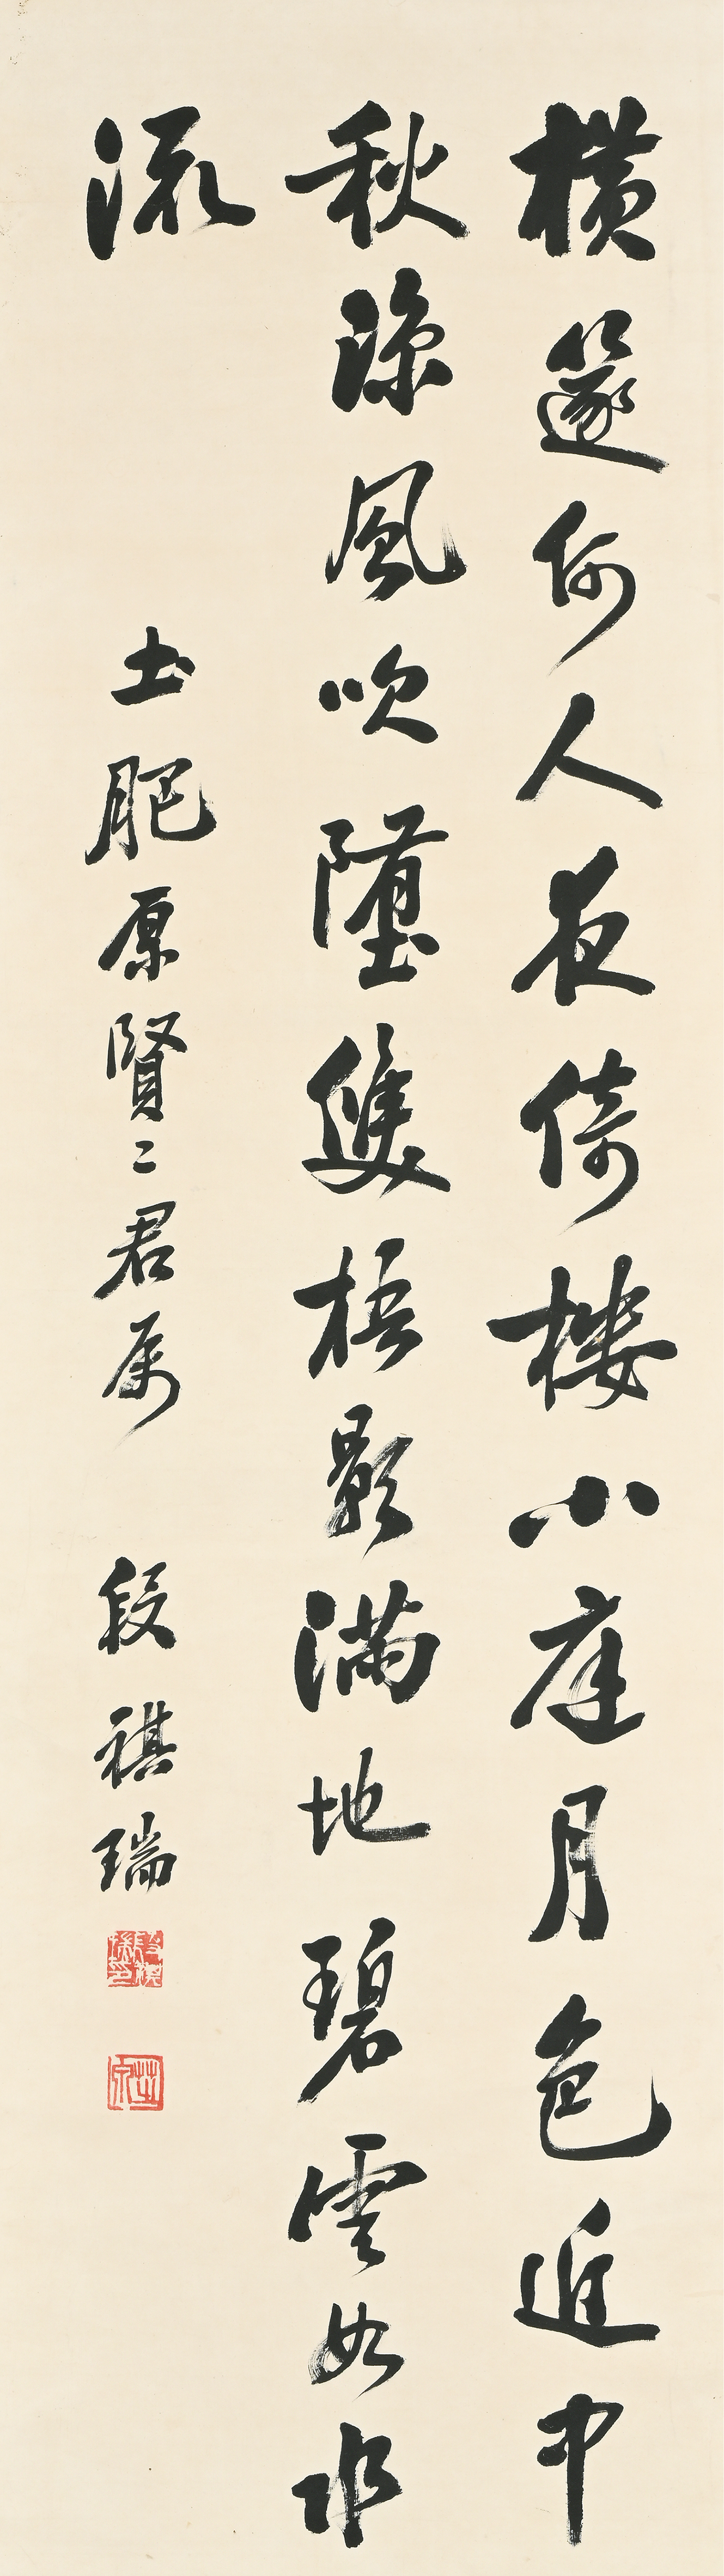 橫篴何人夜倚樓小庭月色近中
秋涼風吹墮雙梧影滿地碧雲如水
流
土肥原賢二君属
段祺瑞